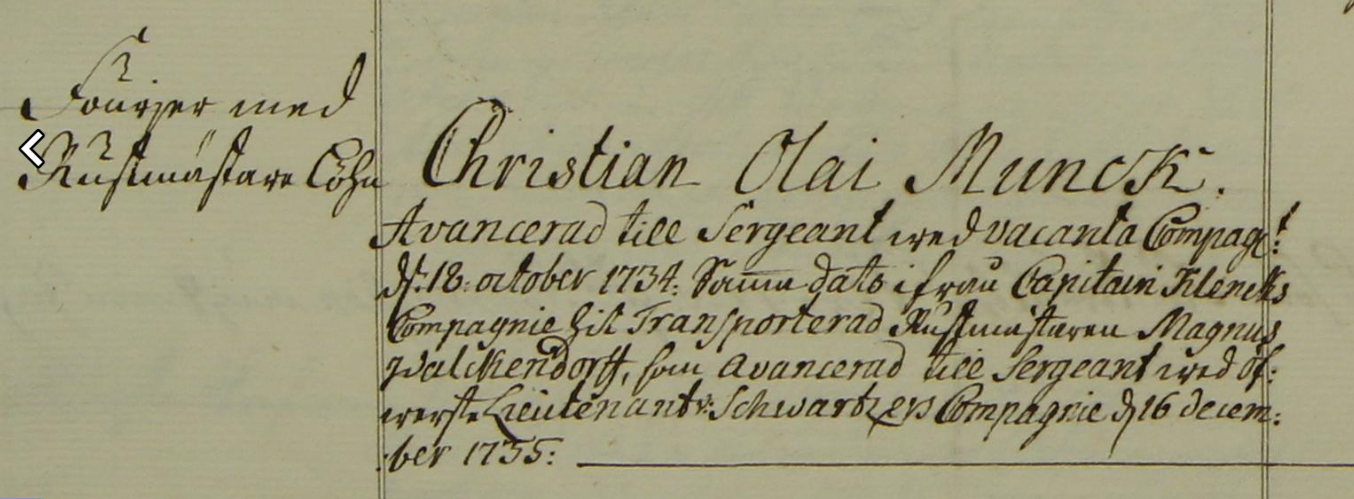 Fourjer med
Rustmästare Löhn
Christian Olai Munck.
Avancerad till Sergeant wed vacanta Compag:t
d: 18: october 1734. Samma dato ifrån Capitain Klencks
Compagnie hit Transporterad Rustmästaren Magnus
Walckendorff, som avancerad till Sergeant wed öf:
werste Lieutenant v: Schwartzens Compagnie d 16 decem:
:ber 1735: